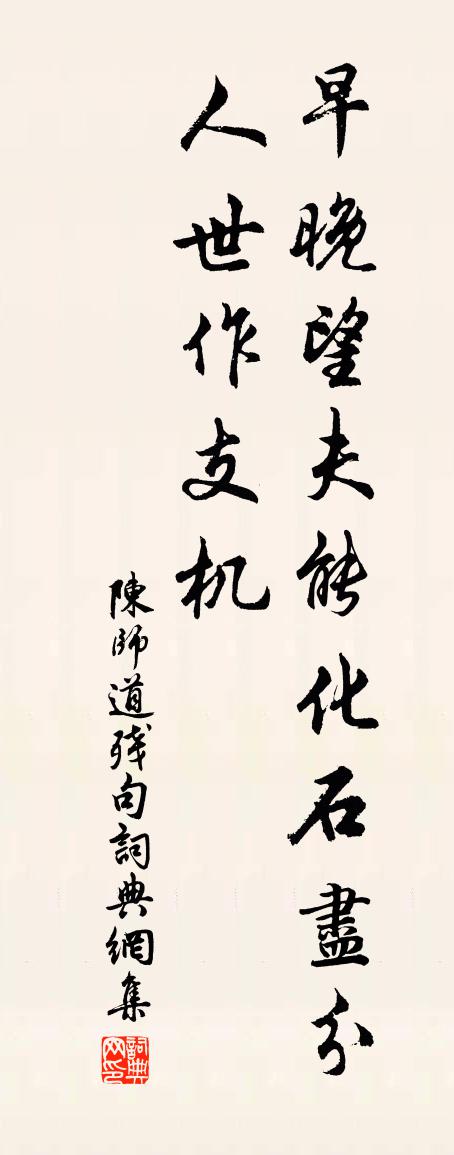 早晚望夫能化石盡分
人世作支机
陳師道残句詞典網集
詞典网印